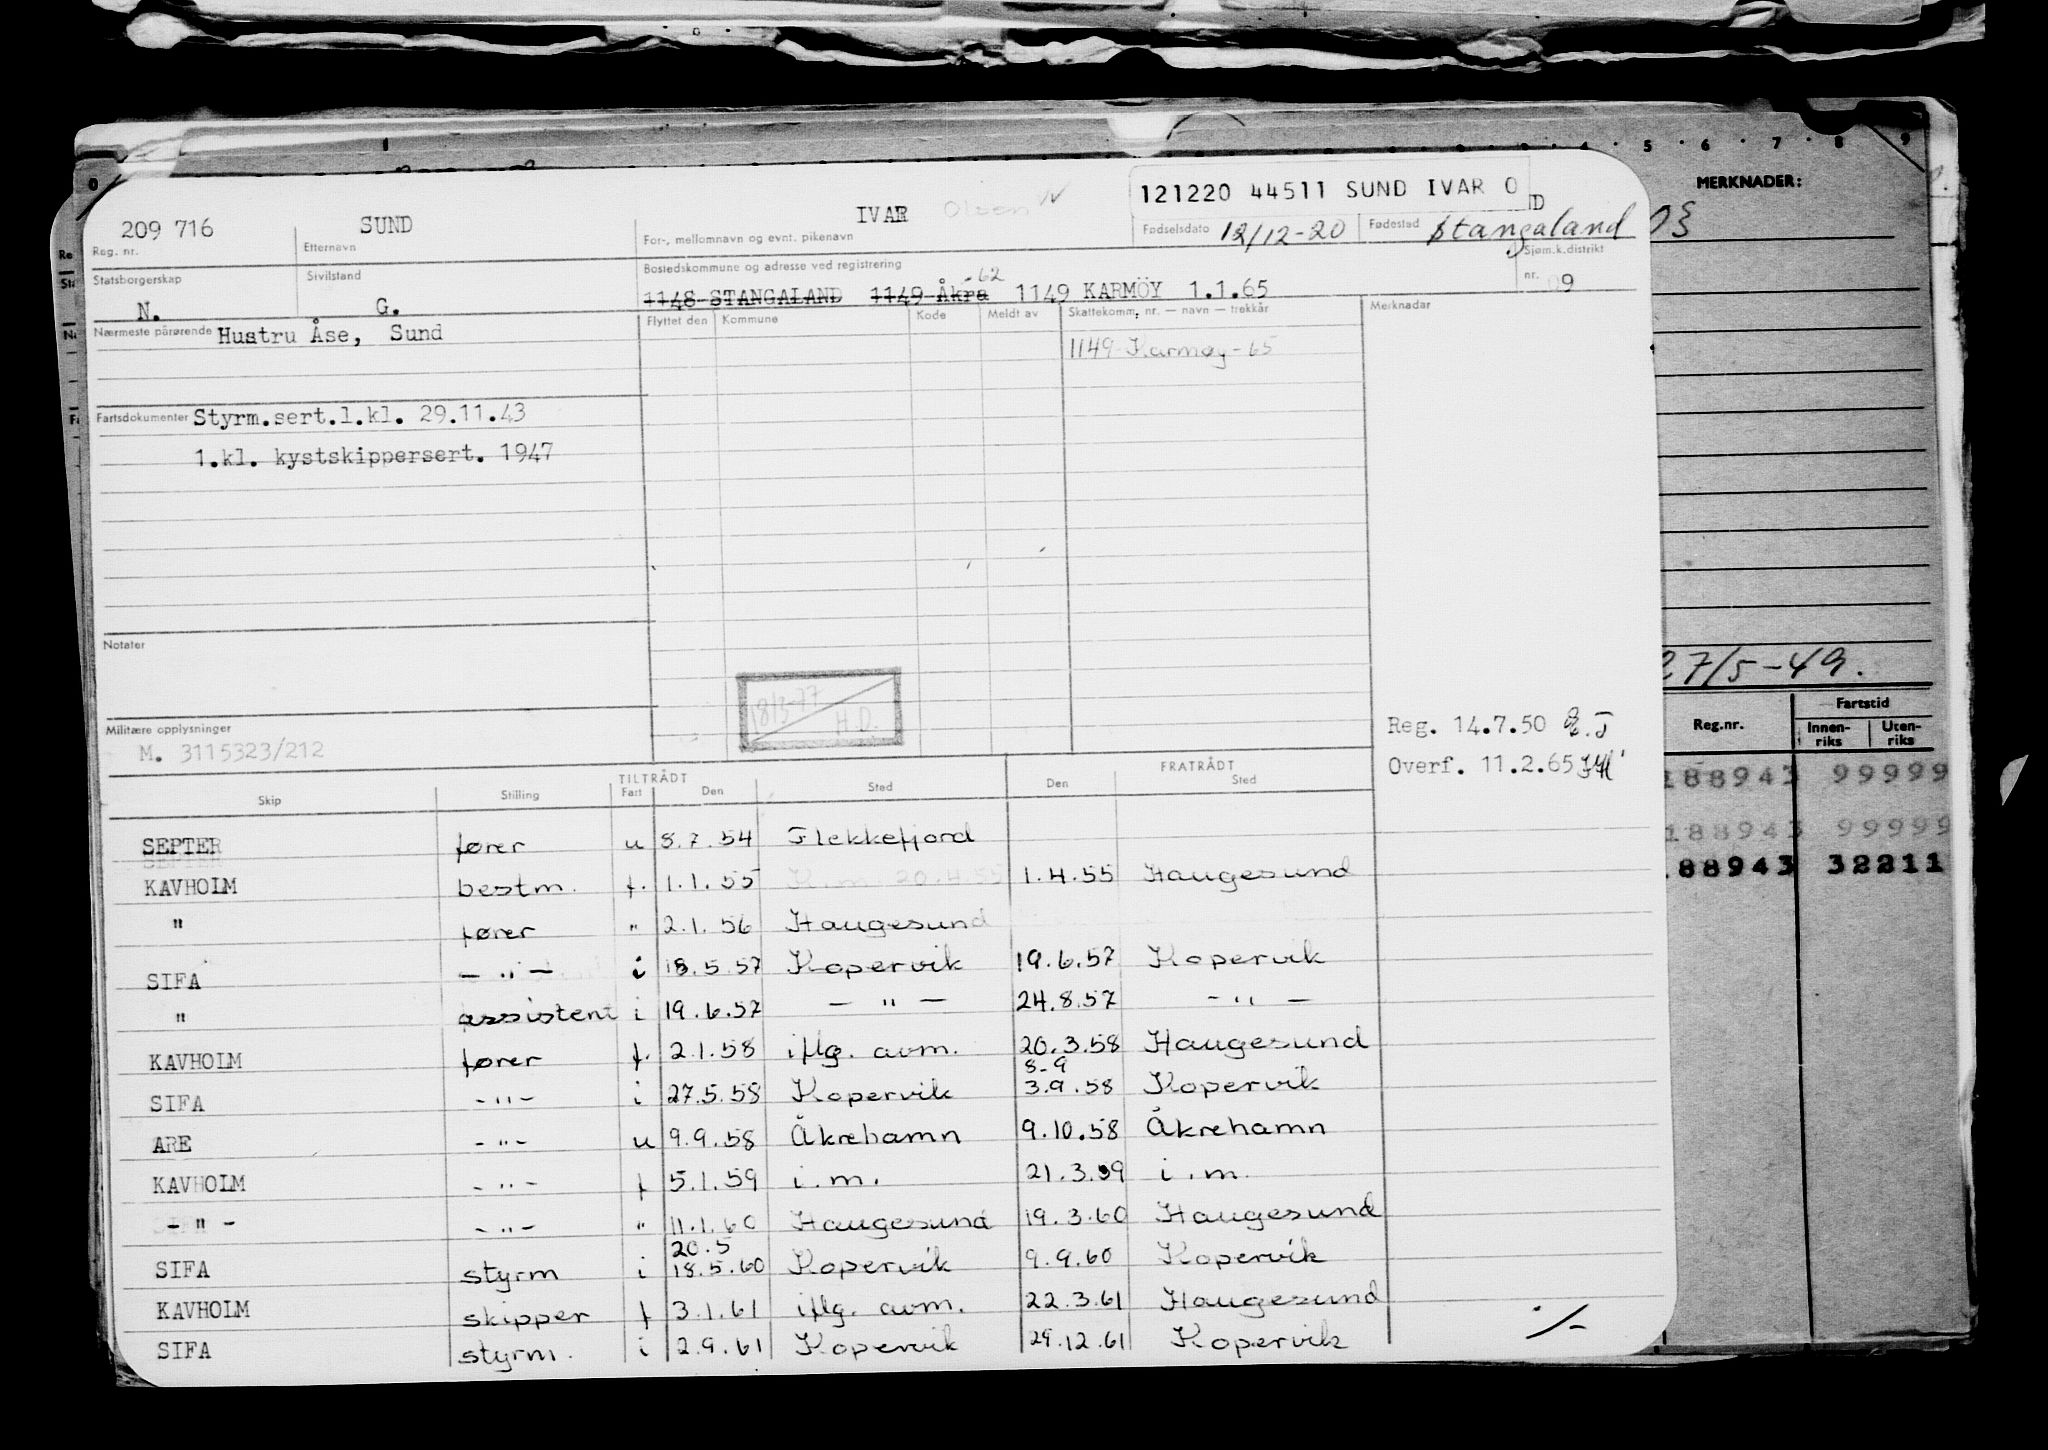 0 1 3 4 5 6 7 8 9
MERKNADER:
121220 44511 SUND IVAR O
209 716 SUND IVAR Olsen
Reg. nr. Etternavn For-, mellomnavn og evnt. pikenavn Fødselsdato 12/12-20 Fødested Stangaland
Statsborgerskap Sivilstand Bostedskommune og adresse ved registrering Sjøm.k.distrikt
N. G. 1148 STANGALAND 1149 Åkra -62 1149 KARMÖY 1.1.65 nr. 09
Nærmeste pårørende Hustru Åse, Sund
Flyttet den Kommune Kode Meldt av Skattekomm. nr. — navn — trekkår Merknadar
1149 Karmøy-65
Fartsdokumenter Styrm.sert.1.kl. 29.11.43
1.kl. kystskippersert. 1947
Notater
18/3-77
H.D.
27/5-49.
Militære opplysninger
M. 3115323/212
Reg. 14.7.50
Overf. 11.2.65
Reg.nr. Fartstid
Innen-riks Uten-riks
188943 99999
188943 99999
88943 32211
TILTRÅDT FRATRÅDT
Skip Stilling Fart Den Sted Den Sted
SEPTER fører u 8.7.54 Flekkefjord
KAVHOLM bestm. f. 1.1.55 K.m. 20.4.55 1.4.55 Haugesund
" fører " 2.1.56 Haugesund
SIFA - " - i 18.5.57 Kopervik 19.6.57 Kopervik
" assistent i 19.6.57 - " - 24.8.57 - " -
KAVHOLM fører f. 2.1.58 iflg. avm. 20.3.58 Haugesund
8-9
SIFA - " - i 27.5.58 Kopervik 3.9.58 Kopervik
ARE - " - u 9.9.58 Åkrehamn 9.10.58 Åkrehamn
KAVHOLM - " - f 5.1.59 i.m. 21.3.59 i.m.
- " - - " - " 11.1.60 Haugesund 19.3.60 Haugesund
20.5
SIFA styrm i 18.5.60 Kopervik 9.9.60 Kopervik
KAVHOLM skipper f 3.1.61 iflg. avm. 22.3.61 Haugesund
SIFA styrm. i 2.9.61 Kopervik 29.12.61 Kopervik
./-